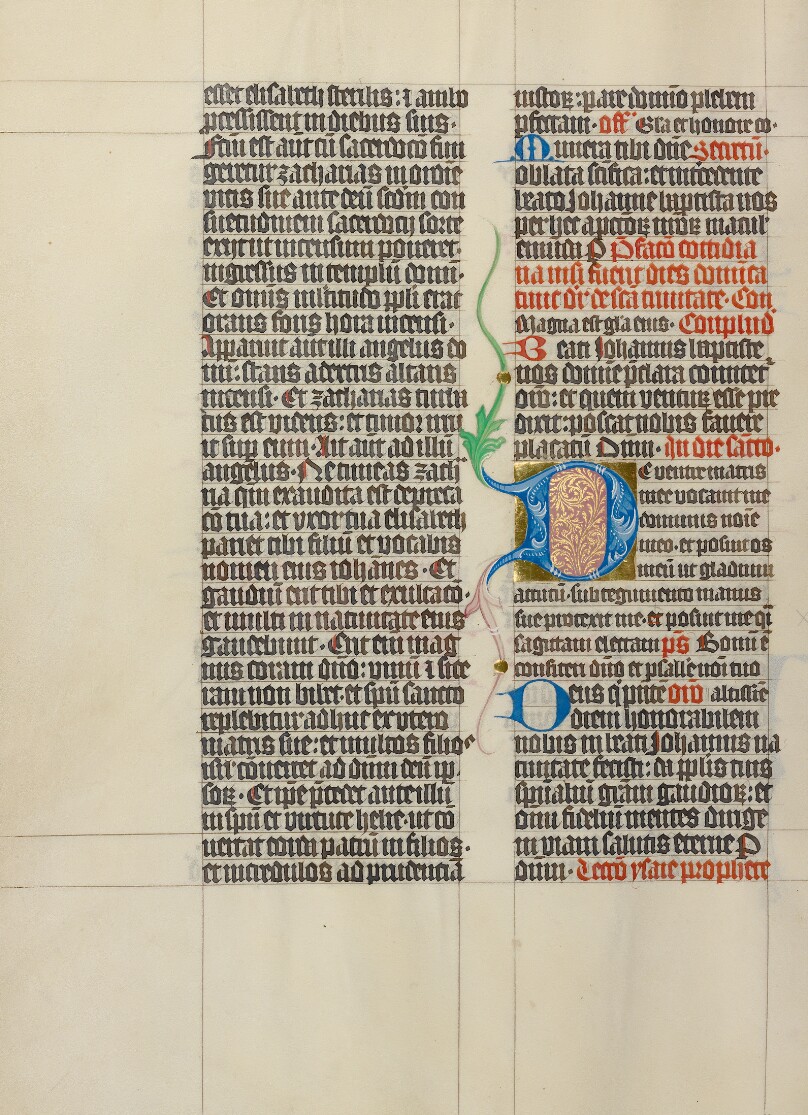 esset elisabeth sterilis: ⁊ ambo
p̄cessissent in diebus suis.
Fc̄m est aut̄ cū sacerdocio fun
geretur zacharias in ordīe
vicis sue ante deū: sc̄dm con
suetudinem sacerdocij sorte
exijt ut incensum poneret.
ingressus in templū domī.
Et omīs multitudo ppl̄i erat
orans foris hora incensi.
Apparuit aut̄ illi angelus do
mī: stans a dextris altaris
incensi. Et zacharias turba
tus est videns: et timor irru
it sup eum. Ait aut̄ ad illū
angelus. Ne timeas zach
ria qm̄ exaudita est depreca
c̄o tua: et vxor tua elisabeth
pariet tibi filiū et vocabis
nomen eius iohānes. Et
gaudiū erit tibi et exultac̄o.
et multi in natiuitate eius
gaudebunt. Erit eīm mag
nus coram dn̄o: vinū ⁊ sice
ram non bibet. et sp̄u sancto
replebitur adhuc ex vtero
matris sue: et multos filios
isr̄l cōuertet ad dn̄m deū ip̄
soꝝ. Et ip̄e p̄cedet ante illū
in sp̄u et virtute helie. ut cō
uertat corda patrū in filios.
et incredulos ad prudenciā
iustoꝝ: parare domīo plebem
pfectam. off̄ Gl̄a et honore co.
Munera tibi dn̄e Secretū.
oblata sc̄ifica: et intercedente
beato Johanne baptista nos
per hec a pc̄coꝝ nr̄oꝝ macul̄
emūda P Pfacō cottidia
na nisi fuerit dies domīca
tunc dr̄ de sc̄a trinitate. Con
Magna est gl̄a eius. Cōplend̄
Beati Johannis baptiste
nos domīe p̄clara comitet̄
or̄o: et quem venturū esse pre
dixit: poscat nobis fauere
placatū Dnm̄. In die sācto.
De ventre matris
mee vocauit me
dominus noīe
meo. et posuit os
meū ut gladium
acutū. sub tegumento manus
sue protexit me. et posuit me q̄si
sagittam electam p̄s Bonū ē
confiteri dn̄o et psallē noī tuo
Deus q̄ p̄ntē or̄o
diem honorabilem
nobis in beati Johannis na
tiuitate fecisti: da ppl̄is tuis
sp̄ualiū gr̄am gaudioꝝ: et
om̄i fideliū mentes dirige
in viam salutis eterne P
dnm̄. Lectō ysaie prophete